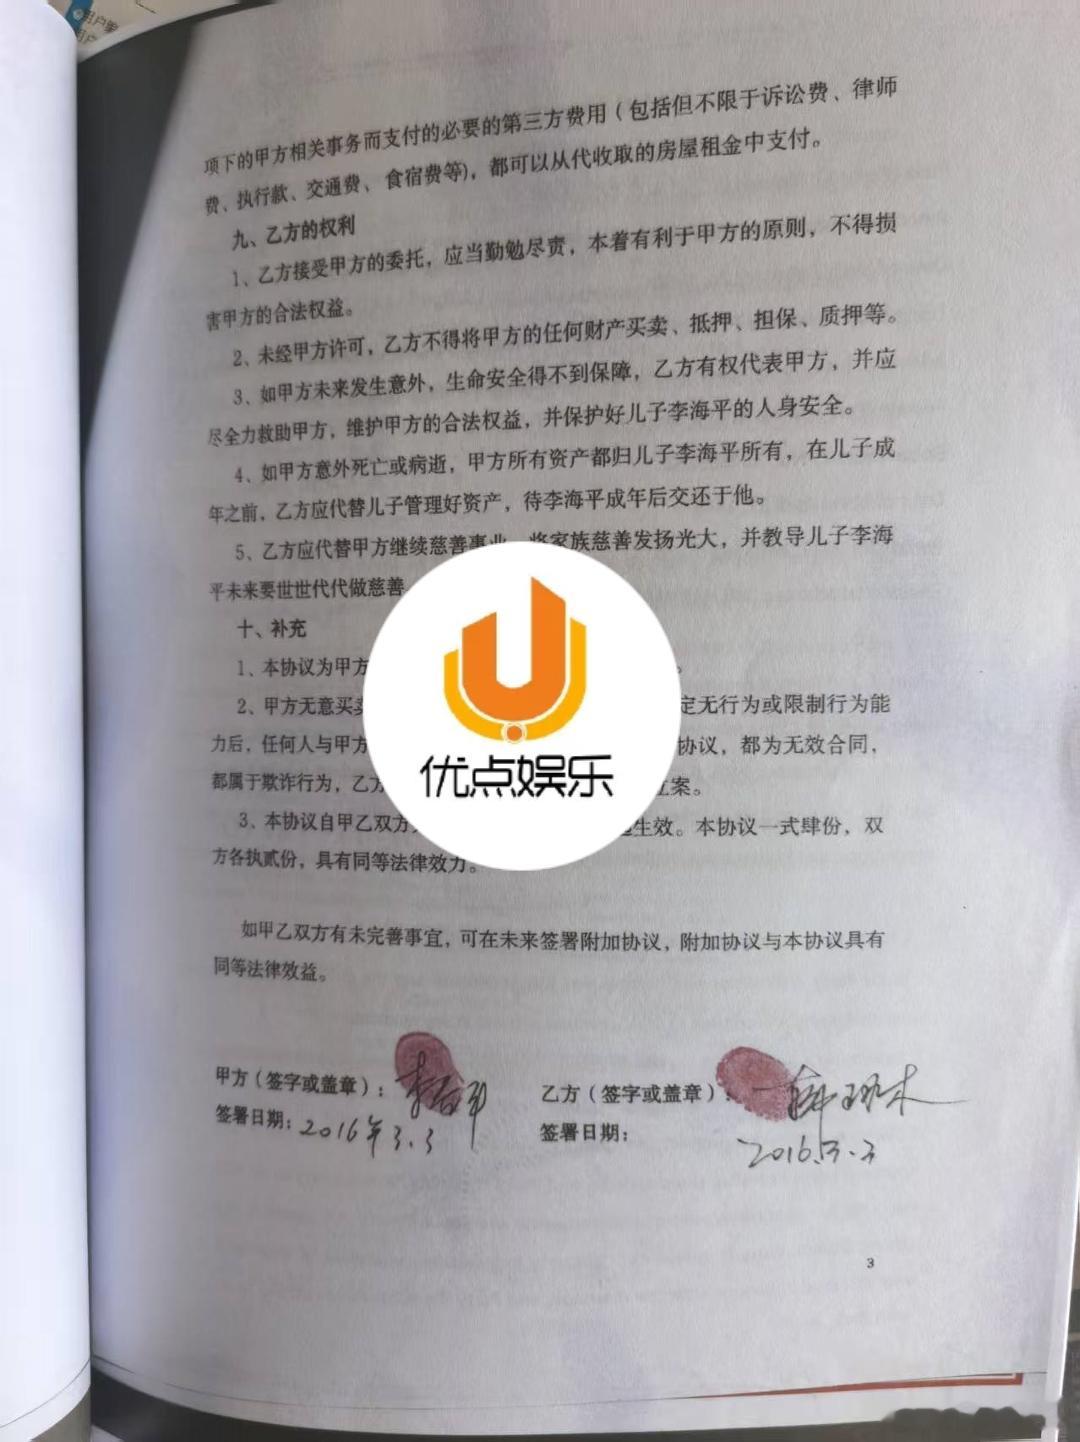 项下的甲方相关事务而支付的必要的第三方费用（包括但不限于诉讼费、律师
费、执行款、交通费、食宿费等)，都可以从代收取的房屋租金中支付。
九、乙方的权利
1、乙方接受甲方的委托，应当勤勉尽责，本着有利于甲方的原则，不得损
害甲方的合法权益。
2、未经甲方许可，乙方不得将甲方的任何财产买卖、抵押、担保、质押等。
3、如甲方未来发生意外，生命安全得不到保障，乙方有权代表甲方，并应
尽全力救助甲方，维护甲方的合法权益，并保护好儿子李海平的人身安全。
4、如甲方意外死亡或病逝，甲方所有资产都归儿子李海平所有，在儿子成
年之前，乙方应代替儿子管理好资产，待李海平成年后交还于他。
5、乙方应代替甲方继续慈善事业，将家族慈善发扬光大，并教导儿子李海
平未来要世世代代做慈善
十、补充
1、本协议为甲方 。
2、甲方无意买卖 定无行为或限制行为能
力后，任何人与甲方 协议，都为无效合同，
都属于欺诈行为，乙方 立案。
3、本协议自甲乙双方 生效。本协议一式肆份，双
方各执贰份，具有同等法律效力。
优点娱乐
如甲乙双方有未完善事宜，可在未来签署附加协议，附加协议与本协议具有
同等法律效益。
甲方（签字或盖章）： 乙方（签字或盖章）：
签署日期：2016年3.3 签署日期：
2016.3.3
3